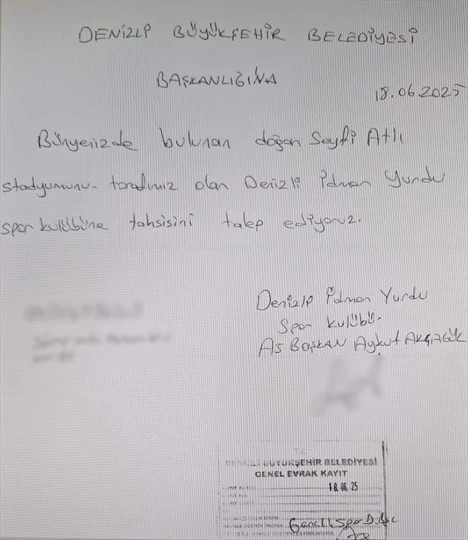 DENİZLP BÜYÜKŞEHİR BELEDİYESİ
BAŞKANLIĞINA
18.06.2025
Bünyenizde bulunan doğan Seyfi Atlı
stadyumunu tarafımız olan Denizli İdman Yurdu
spor kulübüne tahsisini talep ediyoruz.
Denizlp İdman Yurdu
Spor kulübü.
AS BAŞKAN Aykut AKÇAGÜL
DENİZLİ BÜYÜKŞEHİR BELEDİYESİ
GENEL EVRAK KAYIT
18.06.25
Genclispor D.